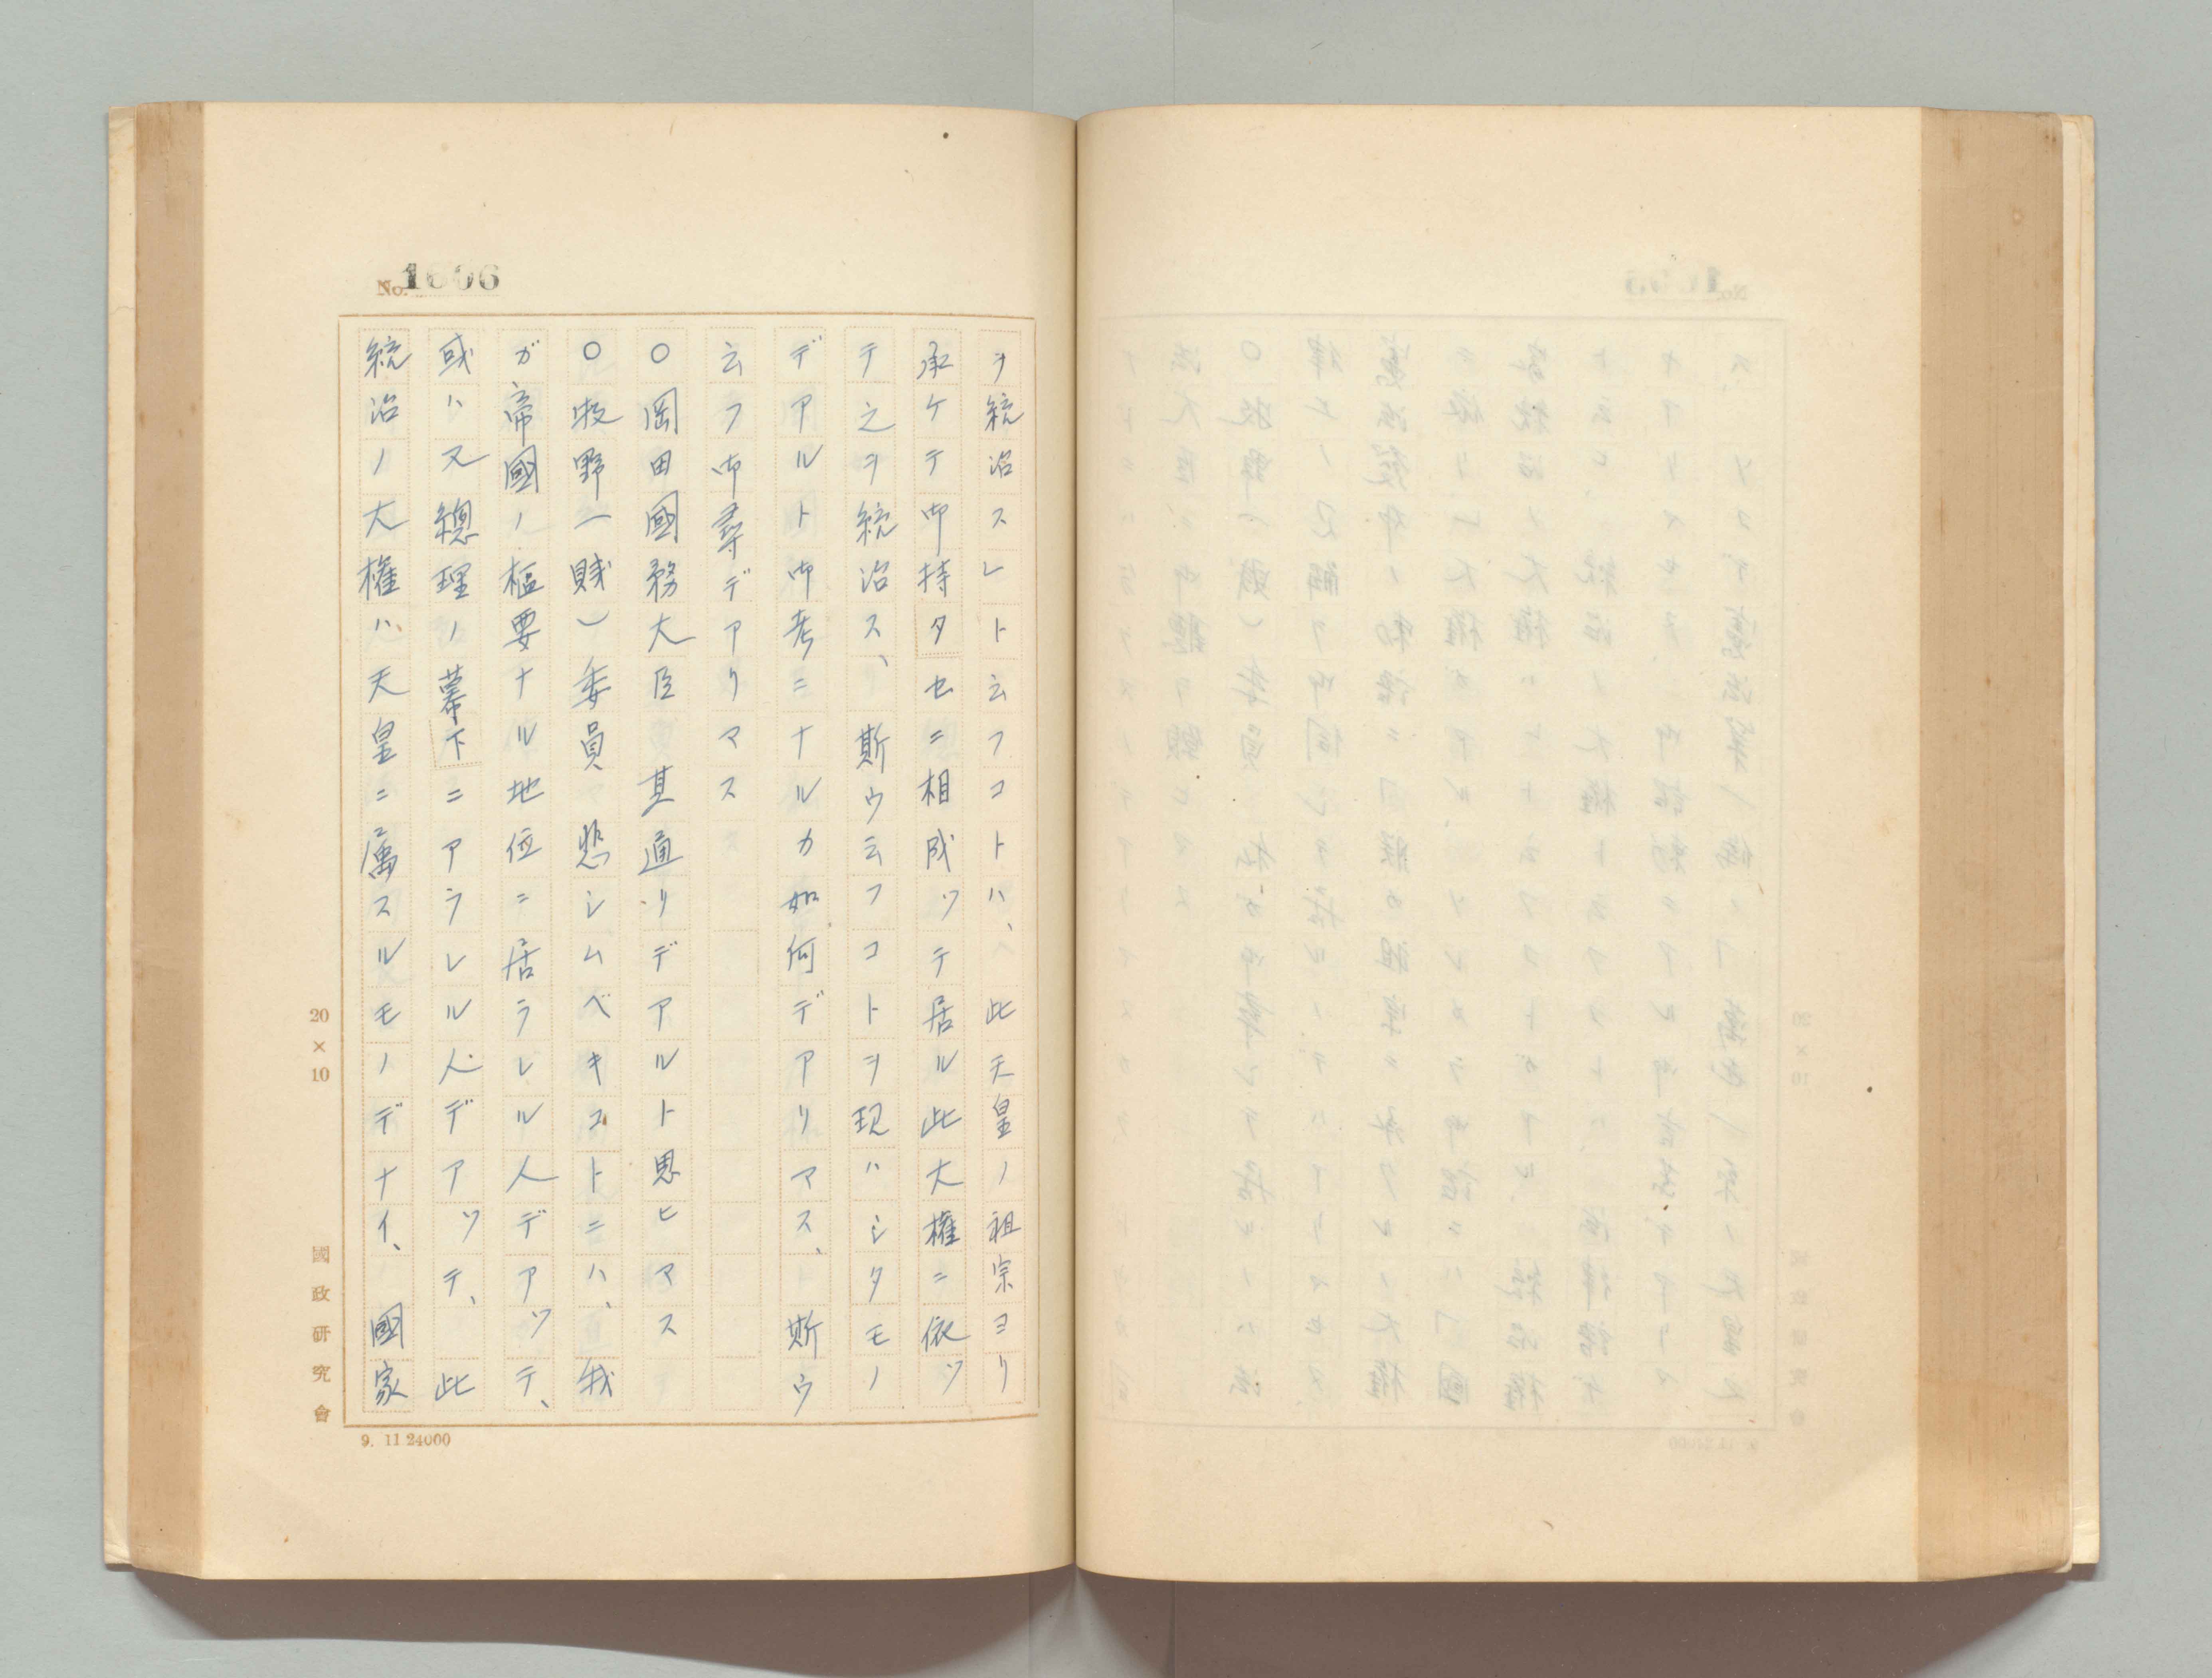 No. 1606
ヲ統治スレトムフコトハ、此天皇ノ祖宗ヨリ
承ケテ御持タセニ相成ツテ居ル此大權ニ依ツ
テ之ヲ統治ス、斯ウ云フコトヲ現ハシタモノ
デアルト御考ニナルカ如何デアリマス、斯ウ
云フ御尋デアリマス
○岡田國務大臣 其通リデアルト思ヒマス
○牧野(賤)委員 悲シムベキコトニハ、我
ガ帝國ノ樞要ナル地位ニ居ラレル人デアツテ、
或ハ又總理ノ幕下ニアラレル人デアツテ、此
統治ノ大權ハ天皇ニ属スルモノデナイ、國家
20×10
國政研究會
9. 11 24000